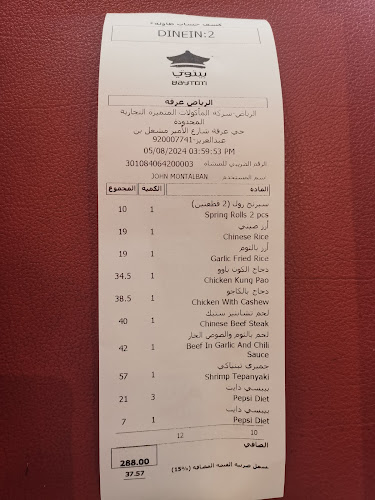 كشف حساب طاولة
DINEIN:2
بيتوتي
BAYTOTI
الرياض عرقه
الرياض شركة المأكولات المتميزة التجارية
المحدودة
حي عرقة شارع الأمير مشعل بن
عبدالعزيز-920007741
05/08/2024 03:59:53 PM
الرقم الضريبي للمنشأة 301084064200003
اسم المستخدم JOHN MONTALBAN
المادة الكمية المجموع
سبرنج رول (2 قطعتين)
Spring Rolls 2 pcs 1 10
أرز صيني
Chinese Rice 1 19
أرز بالثوم
Garlic Fried Rice 1 19
دجاج الكونج باوو
Chicken Kung Pao 1 34.5
دجاج بالكاجو
Chicken With Cashew 1 38.5
لحم تشاينيز ستيك
Chinese Beef Steak 1 40
لحم بالثوم والصوص الحار
Beef In Garlic And Chili 1 42
Sauce
جمبري تيبنياكي
Shrimp Tepanyaki 1 57
بيبسي دايت
Pepsi Diet 3 21
بيبسي دايت
Pepsi Diet 1 7
10 12
الصافي
288.00
يشمل ضريبة القيمة المضافة (15%) 37.57